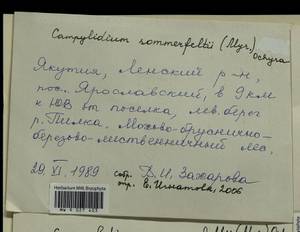 Campylidium sommerfeltii (Myr.)
Ochyra
Якутия, Ленский р-н,
пос. Ярославский, в 9 км
к ЮВ от поселка, лев. берег
р. Пилка. Мохово-бруснично-
березово-лиственничный лес.
29. VI. 1989 собр. Д.И. Захарова
опр. Е. Игнатова, 2006
Herbarium MW, Bryophyta